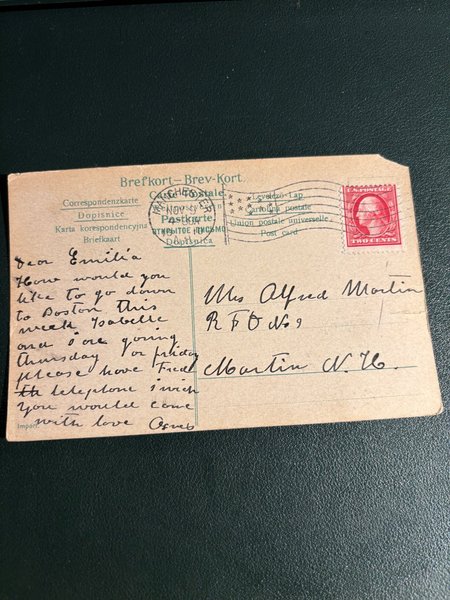 Brefkort—Brev-Kort
Carte postale
Correspondenzkarte
Levelező-Lap
Dopisnice
Cartolina postale
Karta korespondencyjna
Postkarte
Union postale universelle
Briefkaart
ОТКРЫТОЕ ПИСЬМО
Post card
Dopisnica
MANCHESTER
NOV
U.S. POSTAGE
TWO CENTS
Dear Emilia
How would you
like to go down
to Boston this
week Isabelle
and i are going
thursday or friday
please have Fred
telephone i wish
you would come
with love
Mrs Alfred Martin
RFD No 9
Martin N. H.
Import.